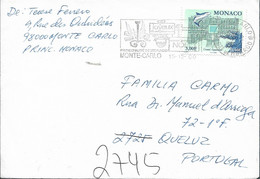 De: Teresa Ferrero
9 Rue des Orchidées
98000 MONTE CARLO
PRINC. MONACO
MONACO
MONTE-CARLO
FAMILIA CARMO
Rua Dr. Manuel d'Arriaga
72-1ºF.
2745 QUELUZ
PORTUGAL
2745